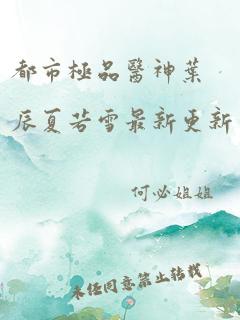 都市極品醫神葉
辰夏若雪最新更新
何必姐姐
未经同意禁止转载